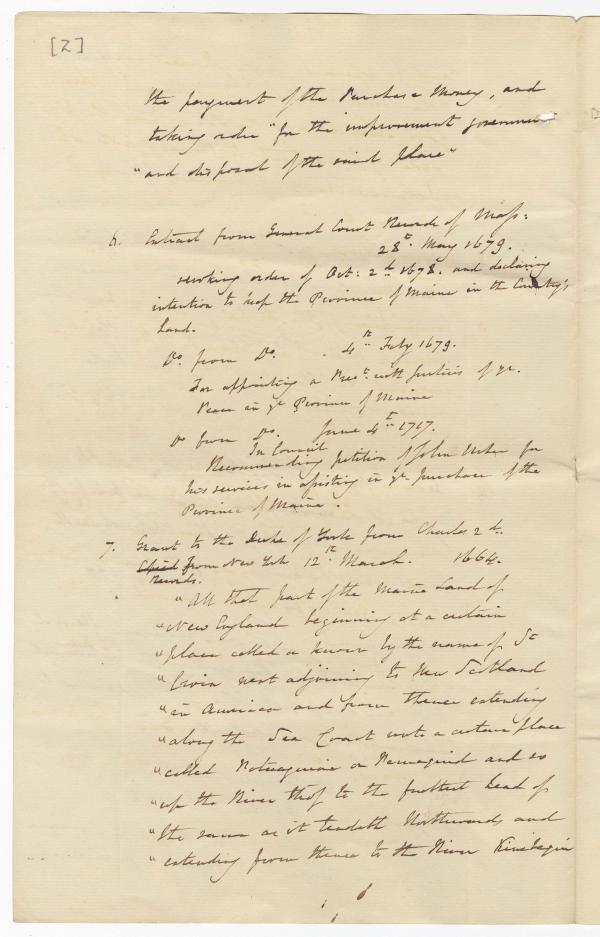 [2]
the payment of the Purchase Money, and
taking order "for the improvement governmen
"and disposal of the said place"
6. Extract from General Court Records of Mass:
28th May 1679.
revoking order of Oct: 2d 1678. and declaring
intention to keep the Province of Maine in the Country's
hand.
Do. from Do. 4th Feby 1679.
For appointing a Prest. with Justices of ye.
Peace in ye Province of Maine
Do from Do. June 4th 1717.
In Council
Recommending petition of John Usher for
his services in assisting in ye purchase of the
Province of Maine.
7. Grant to the Duke of York from Charles 2d.
from New York 12th March. 1664.
records.
"All that part of the Maine Land of
"New England beginning at a certain
"place called or known by the name of St
"Croix next adjoining to New Scotland
"in America and from thence extending
"along the Sea Coast unto a certain place
"called Petuaquine or Pemaquid and so
"up the River thof to the furthest head of
"the same as it tendeth Northward, and
"extending from thence to the River Kinebequin